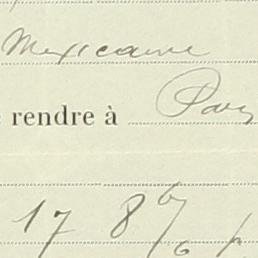 Mexicaine
rendre à Paris
17 8
6